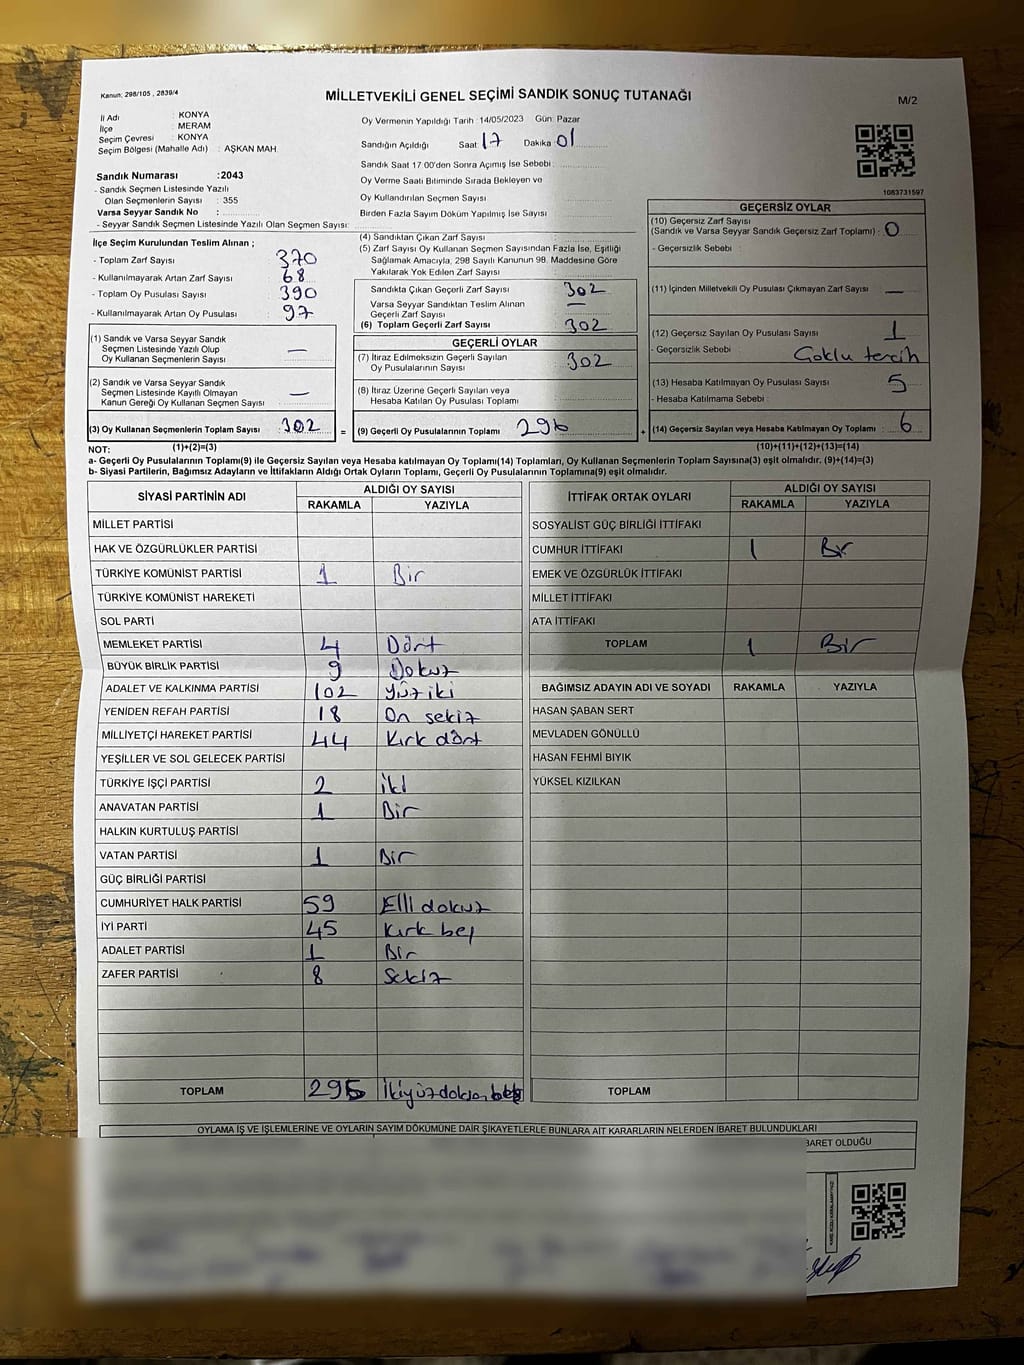 Kanun: 298/105 , 2839/4
MİLLETVEKİLİ GENEL SEÇİMİ SANDIK SONUÇ TUTANAĞI
M/2
İl Adı : KONYA
İlçe : MERAM
Seçim Çevresi : KONYA
Seçim Bölgesi (Mahalle Adı) : AŞKAN MAH.
Oy Vermenin Yapıldığı Tarih : 14/05/2023 Gün: Pazar
Sandığın Açıldığı Saat 17 Dakika 01
Sandık Saat 17:00'den Sonra Açımış İse Sebebi
Sandık Numarası :2043
- Sandık Seçmen Listesinde Yazılı
Olan Seçmenlerin Sayısı : 355
Varsa Seyyar Sandık No :
- Seyyar Sandık Seçmen Listesinde Yazılı Olan Seçmen Sayısı:
Oy Verme Saati Bitiminde Sırada Bekleyen ve
Oy Kullandırılan Seçmen Sayısı
Birden Fazla Sayım Döküm Yapılmış İse Sayısı
1083731597
İlçe Seçim Kurulundan Teslim Alınan ;
- Toplam Zarf Sayısı 370
- Kullanılmayarak Artan Zarf Sayısı 68
- Toplam Oy Pusulası Sayısı 390
- Kullanılmayarak Artan Oy Pusulası 97
(1) Sandık ve Varsa Seyyar Sandık
Seçmen Listesinde Yazılı Olup
Oy Kullanan Seçmenlerin Sayısı —
(2) Sandık ve Varsa Seyyar Sandık
Seçmen Listesinde Kayıtlı Olmayan
Kanun Gereği Oy Kullanan Seçmen Sayısı —
(3) Oy Kullanan Seçmenlerin Toplam Sayısı : 302 =
(1)+(2)=(3)
(4) Sandıktan Çıkan Zarf Sayısı
(5) Zarf Sayısı Oy Kullanan Seçmen Sayısından Fazla İse, Eşitliği
Sağlamak Amacıyla, 298 Sayılı Kanunun 98. Maddesine Göre
Yakılarak Yok Edilen Zarf Sayısı
Sandıkta Çıkan Geçerli Zarf Sayısı 302
Varsa Seyyar Sandıktan Teslim Alınan
Geçerli Zarf Sayısı —
(6) Toplam Geçerli Zarf Sayısı 302
GEÇERLİ OYLAR
(7) İtiraz Edilmeksizin Geçerli Sayılan
Oy Pusulalarının Sayısı 302
(8) İtiraz Üzerine Geçerli Sayılan veya
Hesaba Katılan Oy Pusulası Toplamı
(9) Geçerli Oy Pusulalarının Toplamı 296 +
GEÇERSİZ OYLAR
(10) Geçersiz Zarf Sayısı
(Sandık ve Varsa Seyyar Sandık Geçersiz Zarf Toplamı) : 0
- Geçersizlik Sebebi :
(11) İçinden Milletvekili Oy Pusulası Çıkmayan Zarf Sayısı —
(12) Geçersiz Sayılan Oy Pusulası Sayısı 1
- Geçersizlik Sebebi : Çoklu tercih
(13) Hesaba Katılmayan Oy Pusulası Sayısı 5
- Hesaba Katılmama Sebebi :
(14) Geçersiz Sayılan veya Hesaba Katılmayan Oy Toplamı : 6
(10)+(11)+(12)+(13)=(14)
NOT:
a- Geçerli Oy Pusulalarının Toplamı(9) ile Geçersiz Sayılan veya Hesaba katılmayan Oy Toplamı(14) Toplamları, Oy Kullanan Seçmenlerin Toplam Sayısına(3) eşit olmalıdır. (9)+(14)=(3)
b- Siyasi Partilerin, Bağımsız Adayların ve İttifakların Aldığı Ortak Oyların Toplamı, Geçerli Oy Pusulalarının Toplamına(9) eşit olmalıdır.
SİYASİ PARTİNİN ADI ALDIĞI OY SAYISI
RAKAMLA YAZIYLA
MİLLET PARTİSİ
HAK VE ÖZGÜRLÜKLER PARTİSİ
TÜRKİYE KOMÜNİST PARTİSİ 1 Bir
TÜRKİYE KOMÜNİST HAREKETİ
SOL PARTİ
MEMLEKET PARTİSİ 4 Dört
BÜYÜK BİRLİK PARTİSİ 9 Dokuz
ADALET VE KALKINMA PARTİSİ 102 Yüz iki
YENİDEN REFAH PARTİSİ 18 On sekiz
MİLLİYETÇİ HAREKET PARTİSİ 44 Kırk dört
YEŞİLLER VE SOL GELECEK PARTİSİ
TÜRKİYE İŞÇİ PARTİSİ 2 İki
ANAVATAN PARTİSİ 1 Bir
HALKIN KURTULUŞ PARTİSİ
VATAN PARTİSİ 1 Bir
GÜÇ BİRLİĞİ PARTİSİ
CUMHURİYET HALK PARTİSİ 59 Elli dokuz
İYİ PARTİ 45 Kırk beş
ADALET PARTİSİ 1 Bir
ZAFER PARTİSİ 8 Sekiz
TOPLAM 295 İkiyüzdoksan beş
İTTİFAK ORTAK OYLARI ALDIĞI OY SAYISI
RAKAMLA YAZIYLA
SOSYALİST GÜÇ BİRLİĞİ İTTİFAKI
CUMHUR İTTİFAKI 1 Bir
EMEK VE ÖZGÜRLÜK İTTİFAKI
MİLLET İTTİFAKI
ATA İTTİFAKI
TOPLAM 1 Bir
BAĞIMSIZ ADAYIN ADI VE SOYADI RAKAMLA YAZIYLA
HASAN ŞABAN SERT
MEVLADEN GÖNÜLLÜ
HASAN FEHMİ BIYIK
YÜKSEL KIZILKAN
TOPLAM
OYLAMA İŞ VE İŞLEMLERİNE VE OYLARIN SAYIM DÖKÜMÜNE DAİR ŞİKAYETLERLE BUNLARA AİT KARARLARIN NELERDEN İBARET BULUNDUKLARI
BARET OLDUĞU